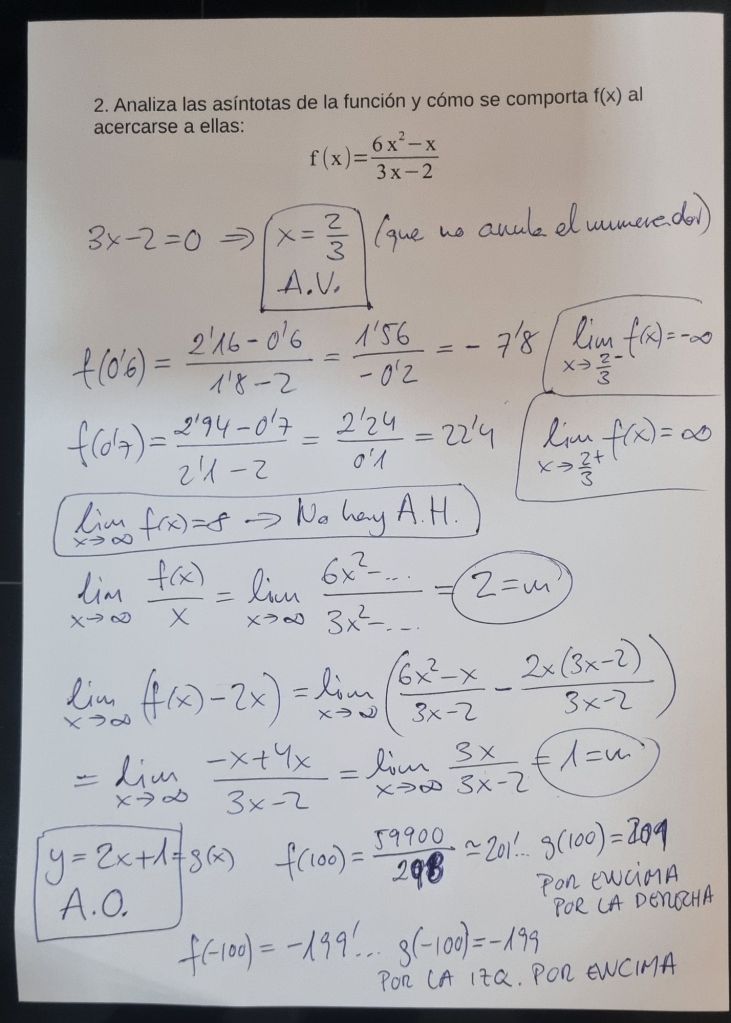 2. Analiza las asíntotas de la función y cómo se comporta f(x) al
acercarse a ellas:
f(x)=(6x²−x)/(3x−2)
3x-2=0 ⇒ x=2/3 (que no anula el numerador)
A.V.
f(0'6) = (2'16-0'6)/(1'8-2) = 1'56/-0'2 = -7'8 lim x→2/3⁻ f(x)=-∞
f(0'7) = (2'94-0'7)/(2'1-2) = 2'24/0'1 = 22'4 lim x→2/3⁺ f(x)=∞
lim x→∞ f(x)=∞ → No hay A.H.
lim x→∞ f(x)/x = lim x→∞ (6x²-...)/(3x²-...) = 2=m
lim x→∞ (f(x)-2x) = lim x→∞ ((6x²-x)/(3x-2) - 2x(3x-2)/(3x-2))
= lim x→∞ (-x+4x)/(3x-2) = lim x→∞ 3x/(3x-2) = 1=n
y=2x+1=g(x) f(100) = 59900/298 ≃ 201'... g(100)=201
A.O.
POR ENCIMA
POR LA DERECHA
f(-100) = -199'... g(-100)=-199
POR LA IZQ. POR ENCIMA